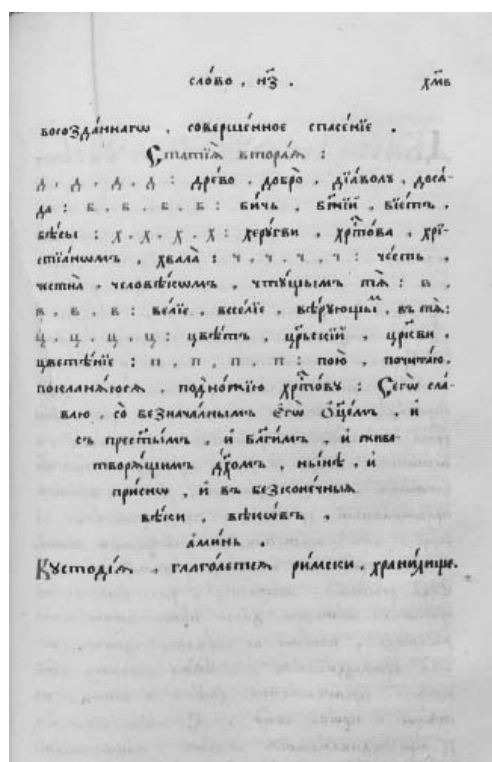 сло́во , н҃з . хм҃в
босозда́ннагѡ , соверше́нное спасе́нїе .
Статїѧ̀ втора́ѧ :
д҃ . д҃ . д҃ . д҃ : дре́во , добро̀ , дїа́волꙋ , доса́-
да : б . б . б . б : би́чь , бж҃їй , бїе́тъ ,
бѣ́сы : х҃ . х҃ . х҃ . х҃ : херꙋ́гви , хрⷭ҇то́ва , хрї-
стїа́нѡмъ , хвала̀ : ч . ч . ч . ч : че́сть ,
честна̀ , человѣ́кѡмъ , чтꙋ́щымъ тѧ̀ : в ,
в , в , в : ве́лїе , весе́лїе , вѣ́рꙋющыⷨ , въ тѧ̀ :
ц҃ . ц҃ . ц҃ . ц҃ : цвѣ́тъ , црⷭ҇кїй , цр҃кви ,
цвете́нїе : п . п . п . п : пою̀ , почита́ю .
покланѧ́юсѧ , подно́жїю хрⷭ҇то́вꙋ : Сегѡ̀ сла́-
влю , со безнача́лнымъ є҆гѡ̀ ѻ҆ц҃е́мъ , и҆
съ прест҃ы́мъ , и҆ бл҃ги́мъ , и҆ живо-
творѧ́щимъ дх҃омъ , ны́нѣ , и҆
при́снѡ , и҆ въ безконе́чныѧ
вѣ́ки , вѣкѡ́въ ,
а҆ми́нь .
Кꙋстѡді́ѧ , глаго́летсѧ ри́мски , храни́лище .